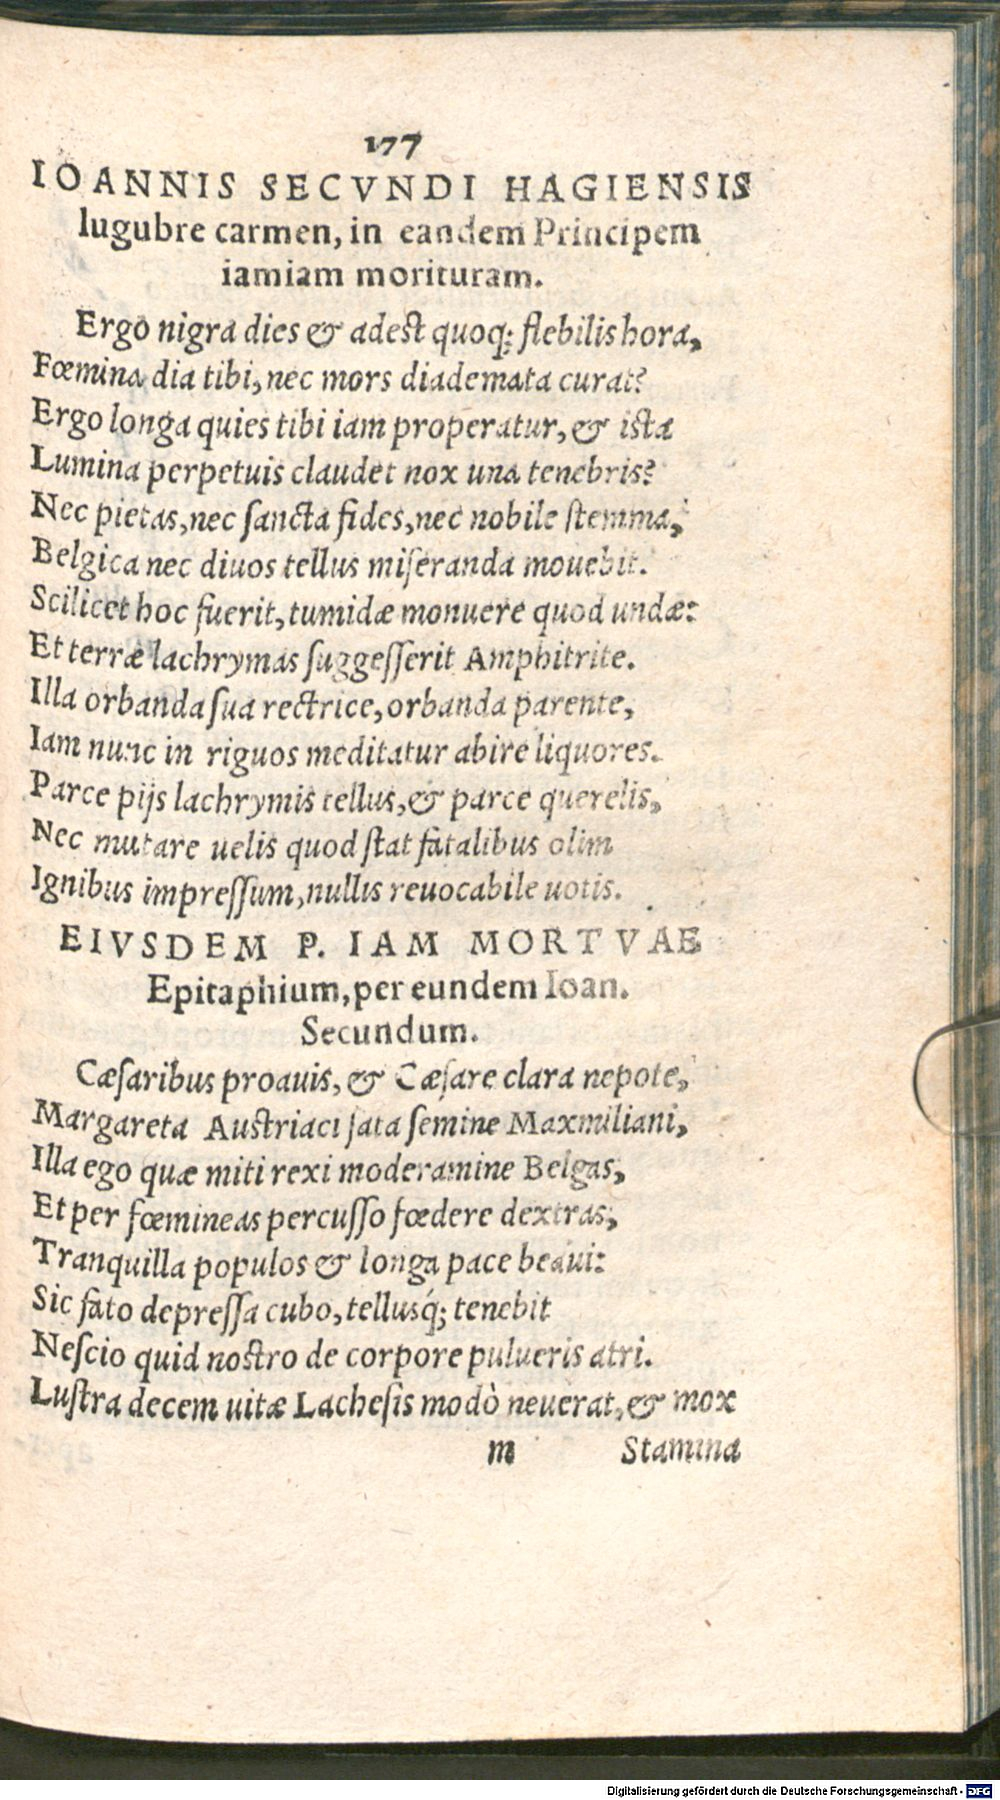 177
IOANNIS SECVNDI HAGIENSIS
lugubre carmen, in eandem Principem
iamiam morituram.
Ergo nigra dies & adest quoq; flebilis hora,
Fœmina dia tibi, nec mors diademata curat?
Ergo longa quies tibi iam properatur, & ista
Lumina perpetuis claudet nox una tenebris?
Nec pietas, nec sancta fides, nec nobile stemma,
Belgica nec diuos tellus miseranda mouebit.
Scilicet hoc fuerit, tumidæ monuere quod undæ:
Et terræ lachrymas suggesserit Amphitrite.
Illa orbanda sua rectrice, orbanda parente,
Iam nunc in riguos meditatur abire liquores.
Parce pijs lachrymis tellus, & parce querelis,
Nec mutare uelis quod stat fatalibus olim
Ignibus impressum, nullis reuocabile uotis.
EIVSDEM P. IAM MORTVAE
Epitaphium, per eundem Ioan.
Secundum.
Cæsaribus proauis, & Cæsare clara nepote,
Margareta Austriaci sata semine Maxmiliani,
Illa ego quæ miti rexi moderamine Belgas,
Et per fœmineas percusso fœdere dextras,
Tranquilla populos & longa pace beaui:
Sic fato depressa cubo, tellusq́; tenebit
Nescio quid nostro de corpore pulueris atri.
Lustra decem uitæ Lachesis modò neuerat, & mox
m Stamina
Digitalisierung gefördert durch die Deutsche Forschungsgemeinschaft - DFG